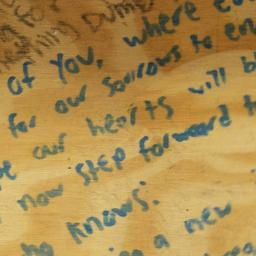 of you, where
for our sorrows to en
our hearts will b
now step forward t
knows:
a new